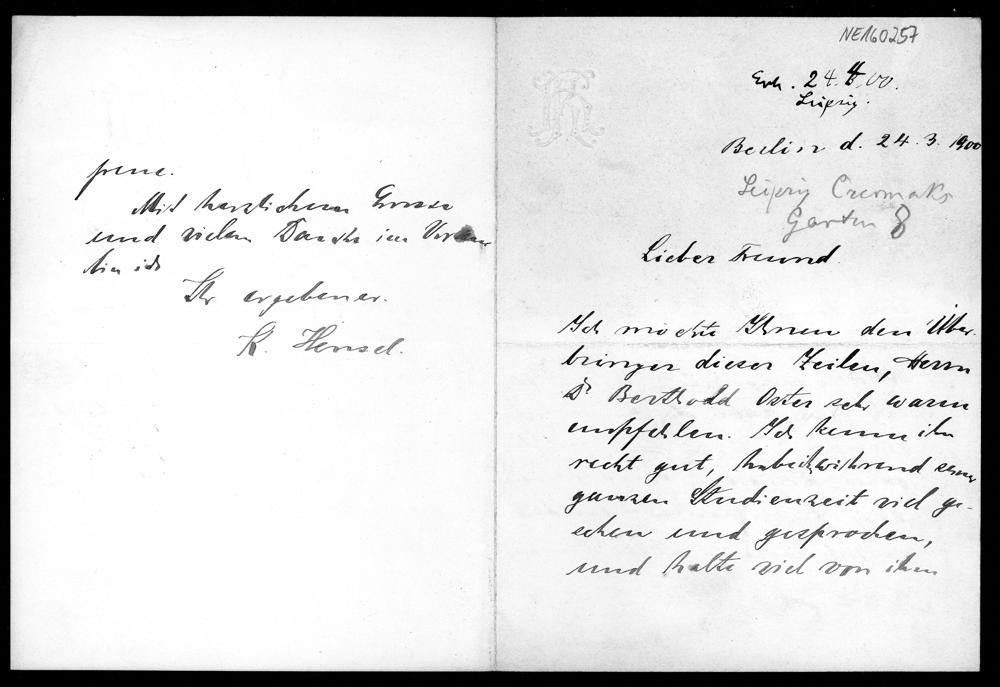 NE160257
Erh. 24.4.00.
Leipzig.
Berlin d. 24. 3. 1900
Leipzig Czermaks
Garten 8
Lieber Freund.
Ich möchte Ihnen den Über-
bringer dieser Zeilen, Herrn
Dr Berthold Oster sehr warm
empfehlen. Ich kenne ihn
recht gut, habe ihn während seiner
ganzen Studienzeit viel ge-
sehen und gesprochen,
und halte viel von ihm
Mit herzlichem Grusse
und vielem Danke im Voraus
bin ich
Ihr ergebener.
K. Hensel.